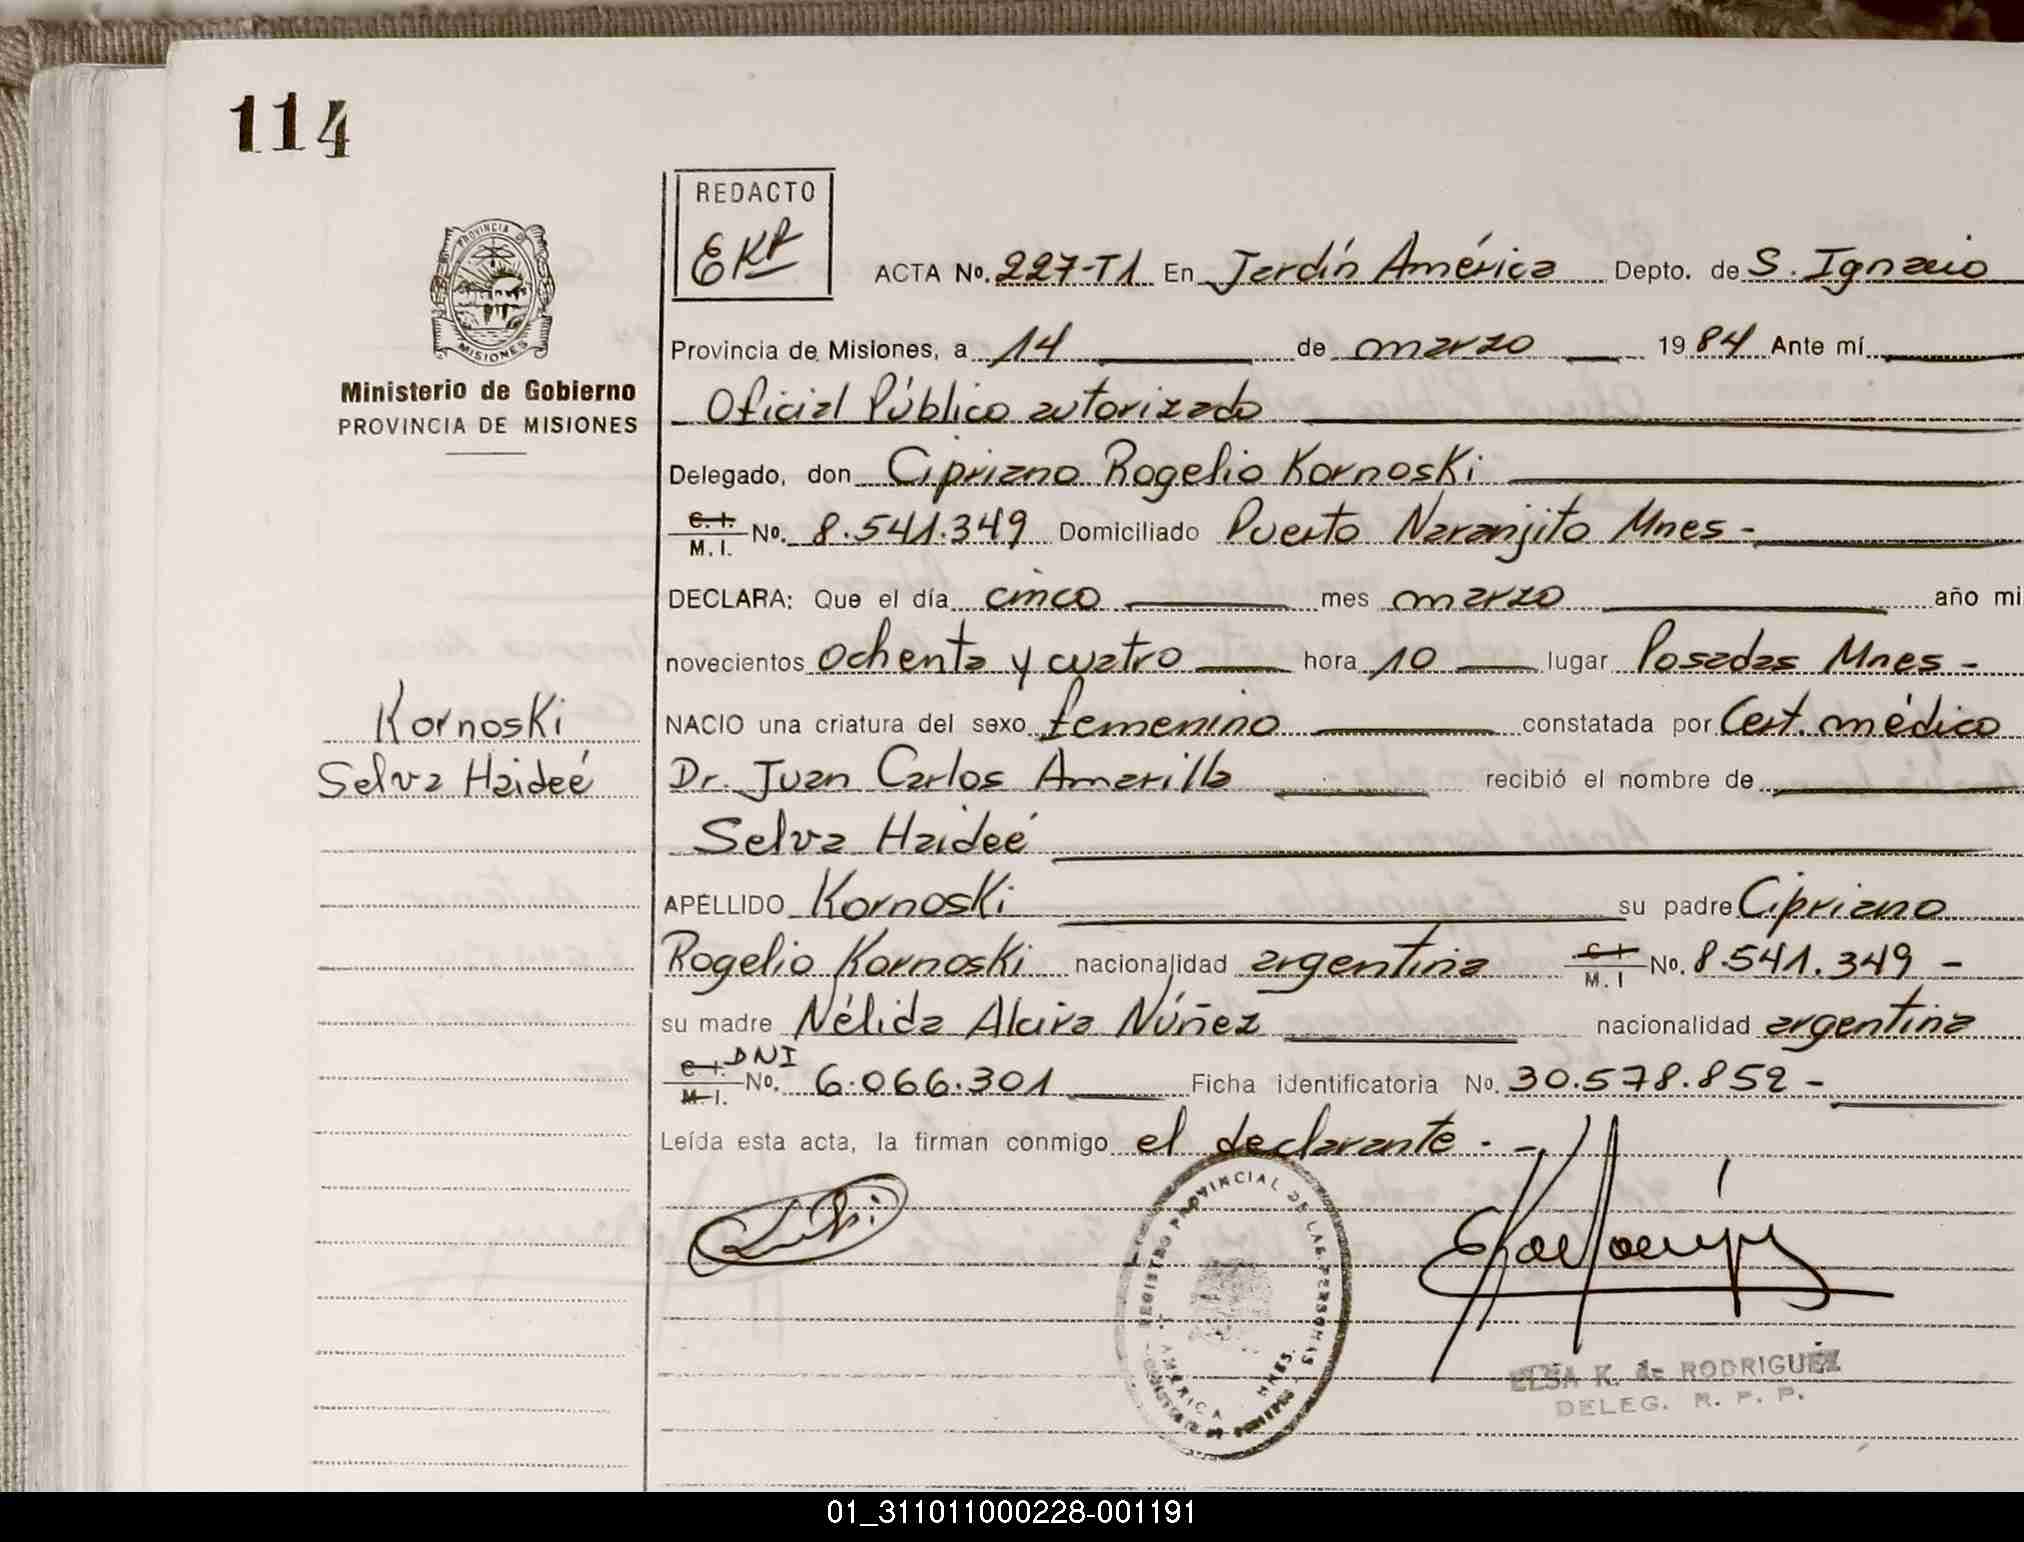 114
REDACTO
EKR
ACTA No. 227-T1 En Jardín América Depto. de S. Ignacio
PROVINCIA DE
MISIONES
Provincia de Misiones, a 14 de marzo 1984 Ante mí
Ministerio de Gobierno
PROVINCIA DE MISIONES
Oficial Público autorizado
Delegado, don Cipriano Rogelio Kornoski
C. I.
M. I. No. 8.541.349 Domiciliado Puerto Naranjito Mnes -
DECLARA: Que el día cinco mes marzo año mi
novecientos ochenta y cuatro hora 10 lugar Posadas Mnes -
Kornoski
NACIO una criatura del sexo femenino constatada por Cert. médico
Selva Haideé
Dr. Juan Carlos Amarilla recibió el nombre de
Selva Haideé
APELLIDO Kornoski su padre Cipriano
Rogelio Kornoski nacionalidad argentina C I M. I No. 8.541.349 -
su madre Nélida Alcira Núñez nacionalidad argentina
C I. M. I. DNI No. 6.066.301 Ficha identificatoria No. 30.578.852 -
Leída esta acta, la firman conmigo el declarante. -
REGISTRO PROVINCIAL DE LAS PERSONAS
AMERICA MNES.
ELSA K. de RODRIGUEZ
DELEG. R. P. P.
01_311011000228-001191